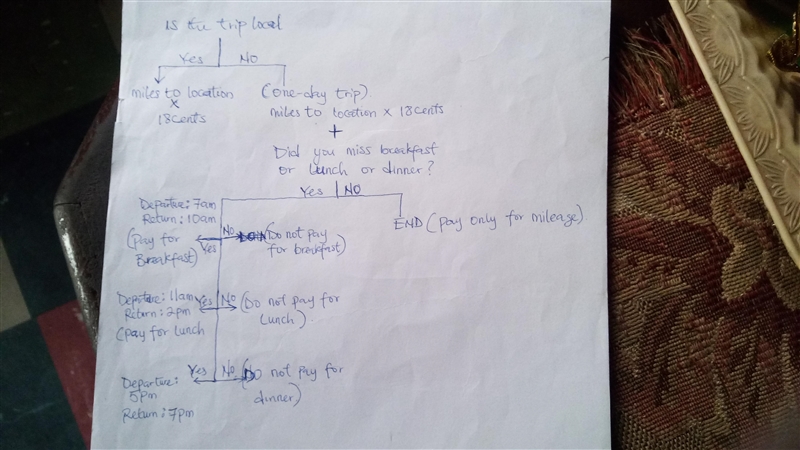 Is the trip local
Yes No
miles to location
x
18 cents
(one-day trip)
miles to location x 18 cents
+
Did you miss breakfast
or Lunch or dinner?
Yes NO
Departure: 7am
Return: 10am
(Pay for
Breakfast)
Yes
No
(Do not pay
for breakfast)
END (pay only for mileage)
Departure: 11am
Return: 2pm
(pay for lunch
Yes No
(Do not pay for
Lunch)
Departure:
5pm
Return: 7pm
Yes No
(Do not pay for
dinner)